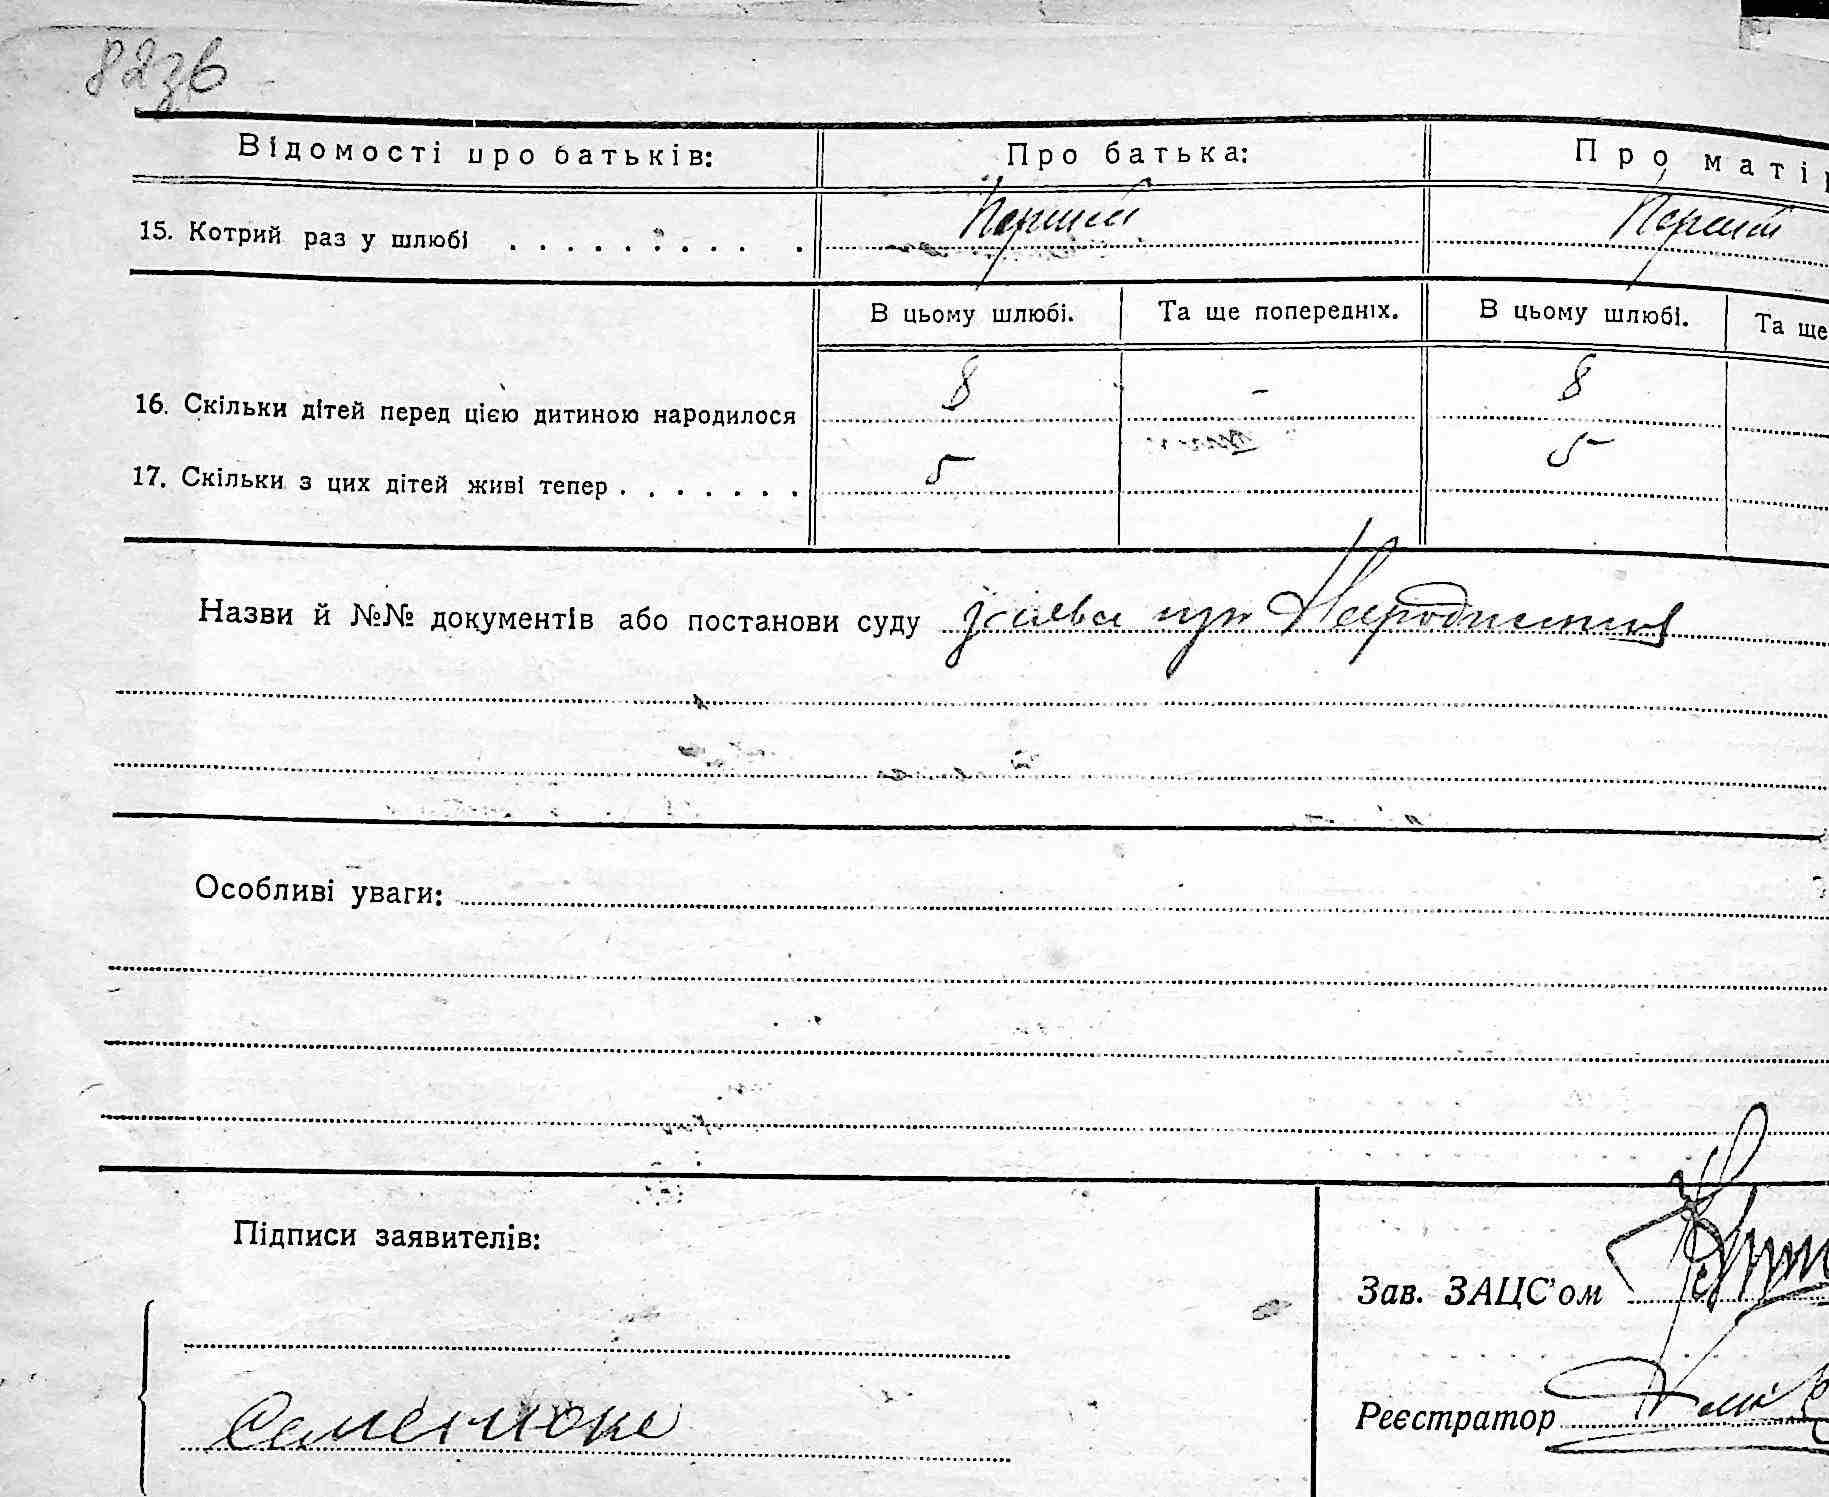 82зв
Відомості про батьків: Про батька: Про матір
15. Котрий раз у шлюбі . . . . . . . . . . Перший Перший
В цьому шлюбі. Та ще попередніх. В цьому шлюбі. Та ще
16. Скільки дітей перед цією дитиною народилося 8 - 8
17. Скільки з цих дітей живі тепер . . . . . . . 5 5
Назви й №№ документів або постанови суду
Особливі уваги:
Підписи заявителів:
Зав. ЗАЦС'ом
Семенюк
Реєстратор